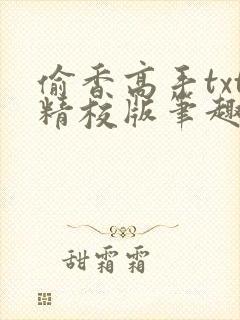 偷香高手txt
精校版笔趣
甜霜霜